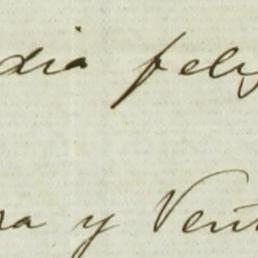 dia feliz
ra y Vent